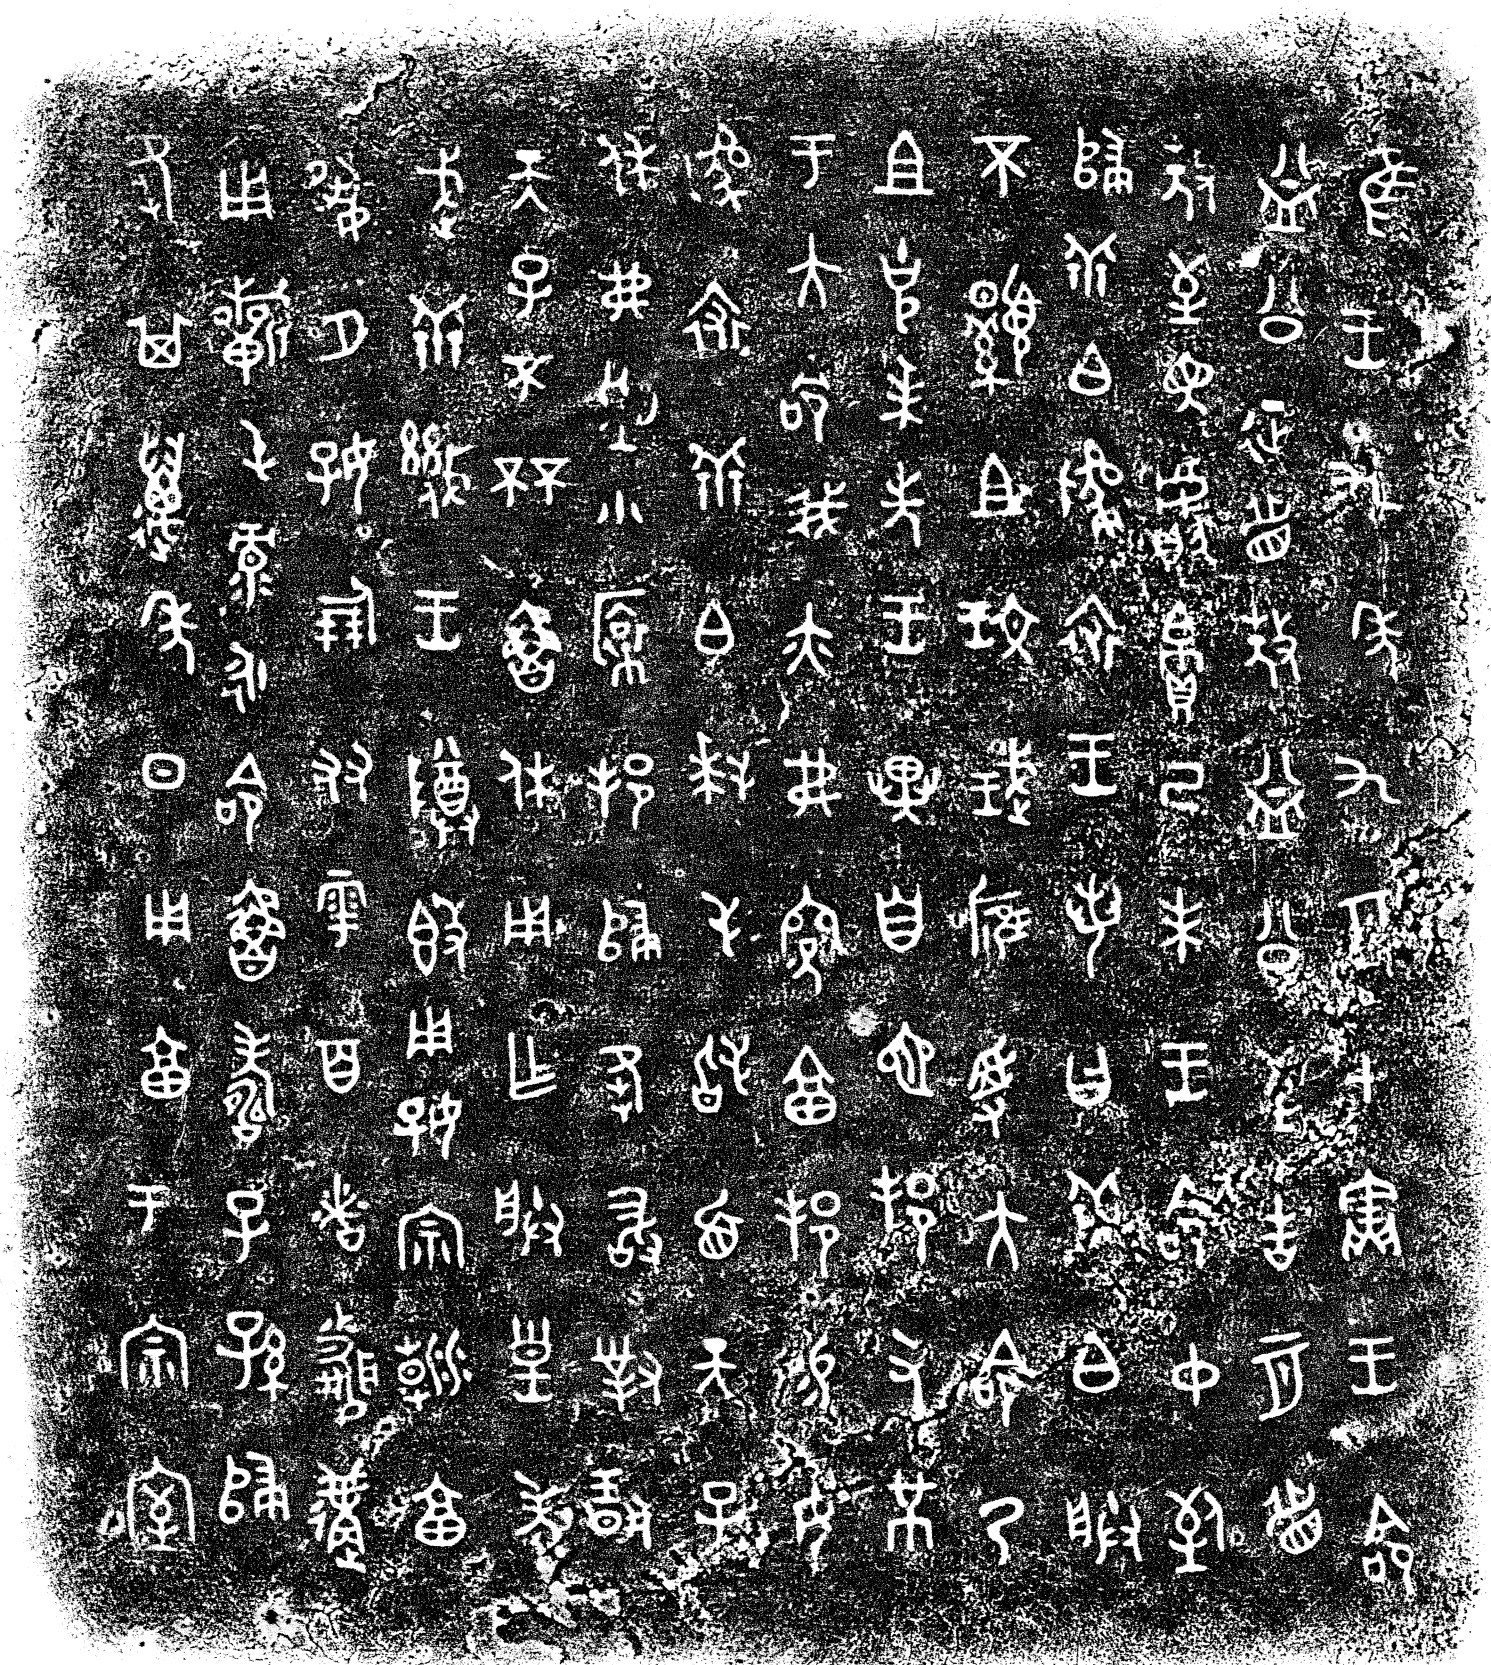 隹王九年九月甲寅王命
益公征眉敖益公至告二月眉
敖至見獻帛己未王命中致
歸乖白貔裘王若曰乖白朕
不顯且玟珷膺受大命乃
且克先王異自它邦又芇
于大命我亦弗享邦易女
貔裘乖白拜手稽首天子
休弗忘小裔邦歸夆敢對揚
天子不𠀠魯休用乍朕皇考
武乖幾王尊簋用好宗朝享
夙夕好倗友雩百者婚遘
用祈屯彔永命魯壽子孫歸
夆其邁年日用享于宗室